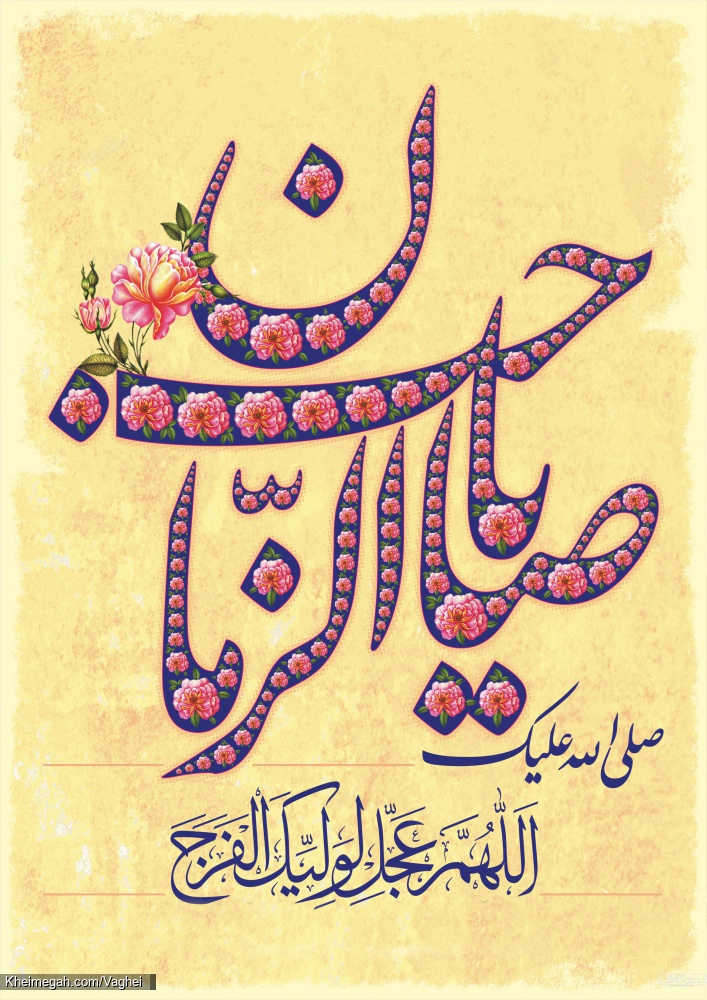 یا صاحب الزّمان
صلی الله علیک
اَللّهُمَّ عَجِّل لِوَلیِّکَ الفَرَج
Kheimegah.com/Vaghei